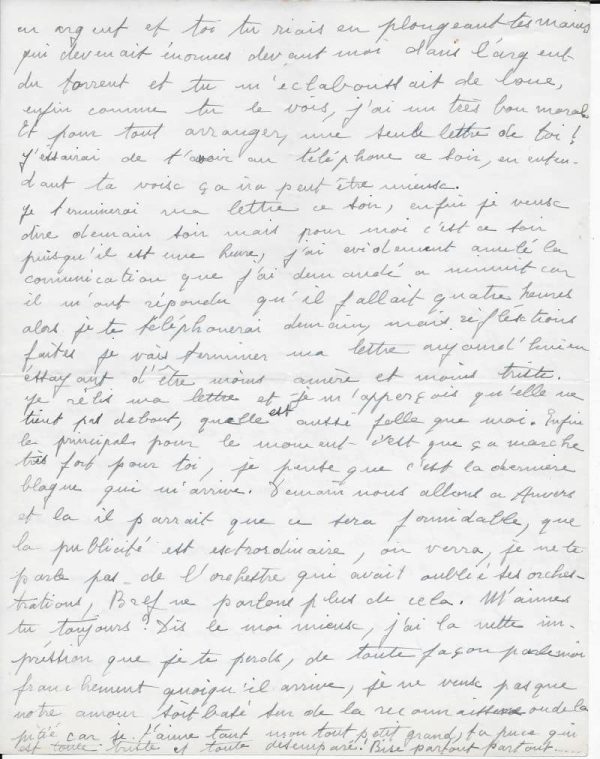 en argent et toi tu riais en plongeant tes mains
qui devenait énormes devant moi dans l'argent
du torrent et tu m'éclaboussait de loue,
enfin comme tu le vois, j'ai un très bon moral
Et pour tout arranger, une seule lettre de toi!
J'essairai de t'avoir au téléphone ce soir, en enten-
dant ta voisc ça ira peut être miensc.
Je terminerai ma lettre ce soir, enfin je veusc
dire demain soir mais pour moi c'est ce soir
puisqu'il est une heure, j'ai evidement annulé la
communication que j'ai demandé a minuit car
il m'ont répondu qu'il fallait quatre heures
alors je te téléphonerai demain, mais réflesctions
faites je vais terminer ma lettre aujourd'hui en
éssayant d'être moins amère et moins triste.
Je rélis ma lettre et je m'apperçois qu'elle ne
tient pas debout, quelle est aussi folle que moi. Enfin
le principal pour le moment c'est que ça marche
très fort pour toi, je pense que c'est la dernière
blague qui m'arrive. Demain nous allons a Anvers
et la il parrait que ce sera formidable, que
la publicité est esctraordinaire, on verra, je ne te
parle pas de l'orchestre qui avait oublié ses orches-
trations, Bref ne parlons plus de cela. M'aimes
tu toujours? Dis le moi miensc, j'ai la nette im-
préssion que je te perds, de toute façon parle moi
franchement quoiqu'il arrive, je ne veusc pas que
notre amour soit basé sur de la reconnaissance ou de la
pitié car je t'aime tant mon tout petit grand, ta puce qui
est toute triste et toute desemparé. Bise partout partout.....